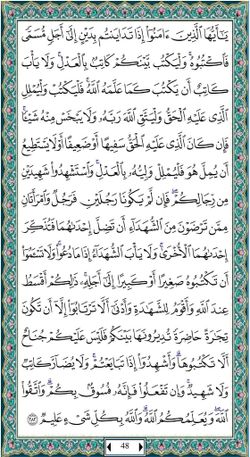 يَٰٓأَيُّهَا ٱلَّذِينَ ءَامَنُوٓا۟ إِذَا تَدَايَنتُم بِدَيْنٍ إِلَىٰٓ أَجَلٍ مُّسَمًّى
فَٱكْتُبُوهُ ۚ وَلْيَكْتُب بَّيْنَكُمْ كَاتِبٌۢ بِٱلْعَدْلِ ۚ وَلَا يَأْبَ
كَاتِبٌ أَن يَكْتُبَ كَمَا عَلَّمَهُ ٱللَّهُ ۚ فَلْيَكْتُبْ وَلْيُمْلِلِ
ٱلَّذِى عَلَيْهِ ٱلْحَقُّ وَلْيَتَّقِ ٱللَّهَ رَبَّهُۥ وَلَا يَبْخَسْ مِنْهُ شَيْـًٔا ۚ
فَإِن كَانَ ٱلَّذِى عَلَيْهِ ٱلْحَقُّ سَفِيهًا أَوْ ضَعِيفًا أَوْ لَا يَسْتَطِيعُ
أَن يُمِلَّ هُوَ فَلْيُمْلِلْ وَلِيُّهُۥ بِٱلْعَدْلِ ۚ وَٱسْتَشْهِدُوا۟ شَهِيدَيْنِ
مِن رِّجَالِكُمْ ۖ فَإِن لَّمْ يَكُونَا رَجُلَيْنِ فَرَجُلٌ وَٱمْرَأَتَانِ
مِمَّن تَرْضَوْنَ مِنَ ٱلشُّهَدَآءِ أَن تَضِلَّ إِحْدَىٰهُمَا فَتُذَكِّرَ
إِحْدَىٰهُمَا ٱلْأُخْرَىٰ ۚ وَلَا يَأْبَ ٱلشُّهَدَآءُ إِذَا مَا دُعُوا۟ ۚ وَلَا تَسْـَٔمُوٓا۟
أَن تَكْتُبُوهُ صَغِيرًا أَوْ كَبِيرًا إِلَىٰٓ أَجَلِهِۦ ۚ ذَٰلِكُمْ أَقْسَطُ
عِندَ ٱللَّهِ وَأَقْوَمُ لِلشَّهَٰدَةِ وَأَدْنَىٰٓ أَلَّا تَرْتَابُوٓا۟ ۖ إِلَّآ أَن تَكُونَ
تِجَٰرَةً حَاضِرَةً تُدِيرُونَهَا بَيْنَكُمْ فَلَيْسَ عَلَيْكُمْ جُنَاحٌ
أَلَّا تَكْتُبُوهَا ۗ وَأَشْهِدُوٓا۟ إِذَا تَبَايَعْتُمْ ۚ وَلَا يُضَآرَّ كَاتِبٌ
وَلَا شَهِيدٌ ۚ وَإِن تَفْعَلُوا۟ فَإِنَّهُۥ فُسُوقٌۢ بِكُمْ ۗ وَٱتَّقُوا۟
ٱللَّهَ ۖ وَيُعَلِّمُكُمُ ٱللَّهُ ۗ وَٱللَّهُ بِكُلِّ شَىْءٍ عَلِيمٌ ٢٨٢
48